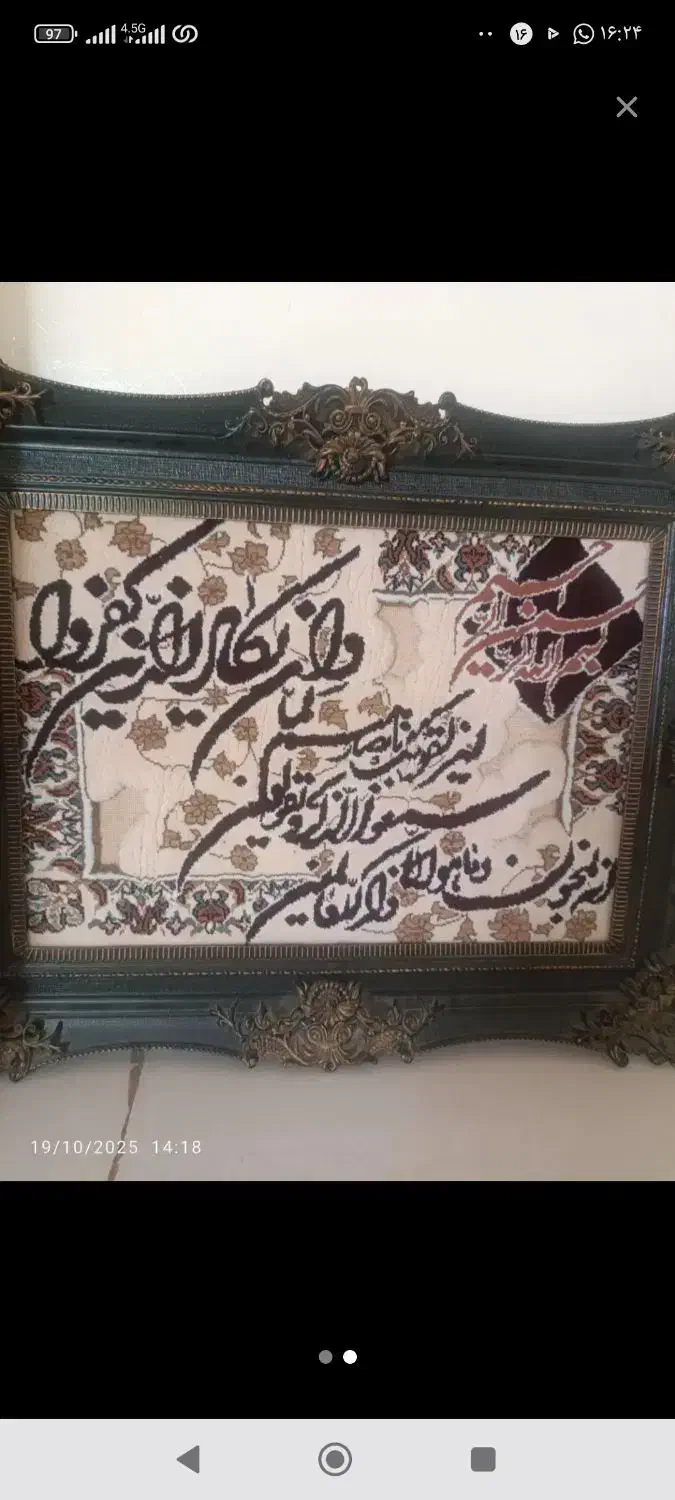 97
4.5G
۱۶
۱۶:۲۴
بسم الله الرحمن الرحیم
وان یکاد الذین کفروا
لیزلقونک بابصارهم لما
سمعوا الذکر و یقولون
انه لمجنون و ما هو الا
ذکر للعالمین
19/10/2025 14:18